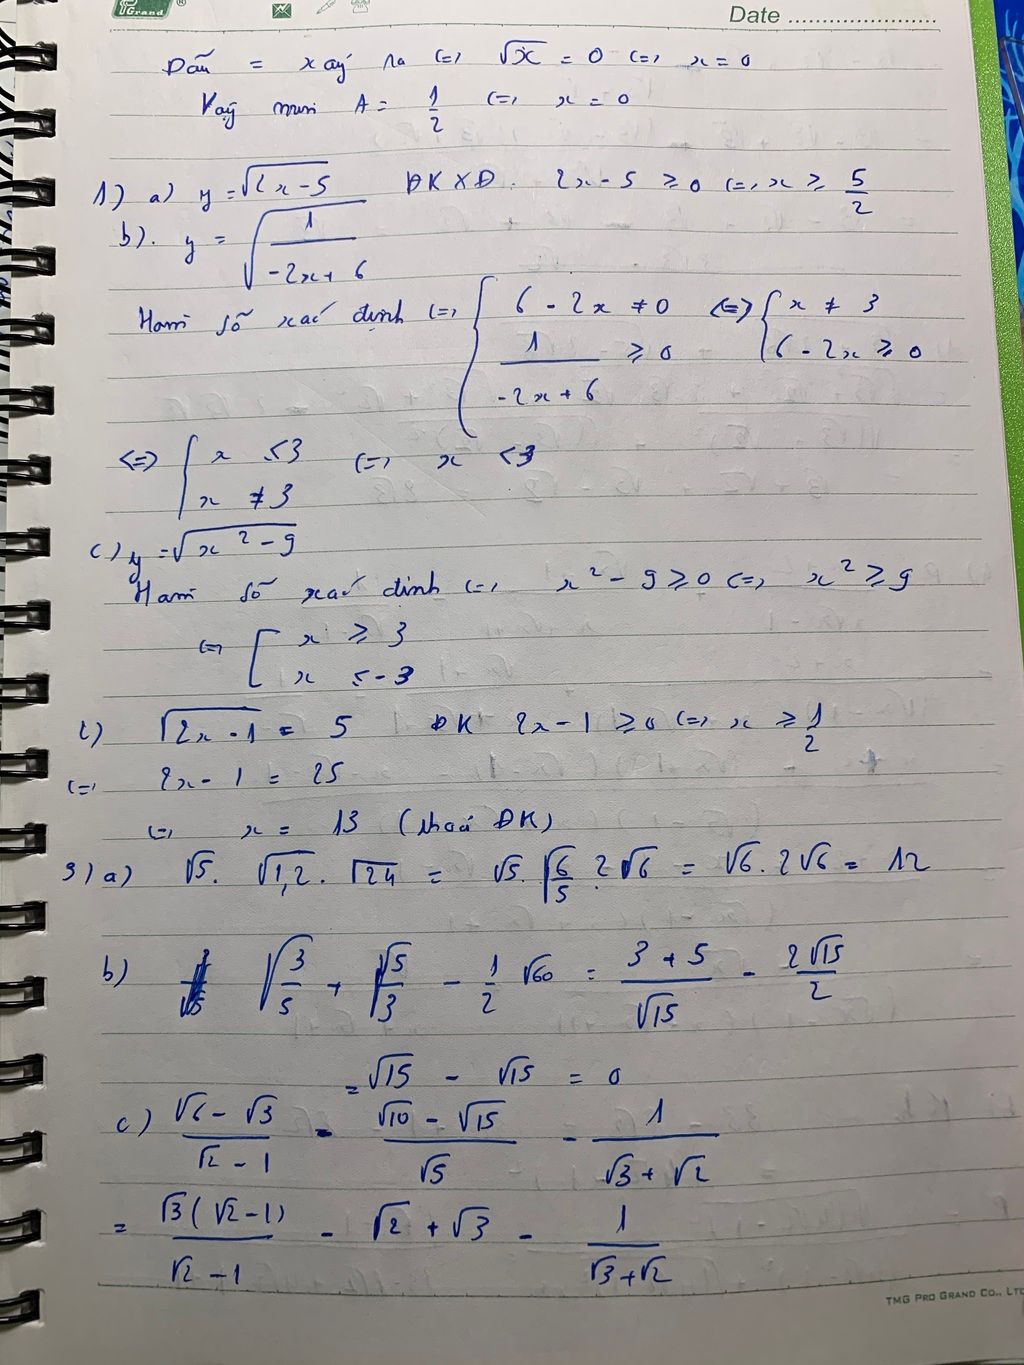 Grand ®
Date ........................
Dấu = xảy ra <=> √x = 0 <=> x = 0
Vậy min A = 1/2 <=> x = 0
1) a) y = √(2x-5) ĐKXĐ. 2x-5 ≥ 0 <=> x ≥ 5/2
b). y = √(1/(-2x+6))
Hàm số xác định <=> { 6-2x ≠ 0 ; 1/(-2x+6) ≥ 0 <=> { x ≠ 3 ; 6-2x ≥ 0
<=> { x ≤ 3 ; x ≠ 3 <=> x < 3
c) y = √(x²-9)
Hàm số xác định <=> x²-9 ≥ 0 <=> x² ≥ 9
<=> [ x ≥ 3 ; x ≤ -3
2) √(2x-1) = 5 ĐK 2x-1 ≥ 0 <=> x ≥ 1/2
<=> 2x-1 = 25
<=> x = 13 (thoả ĐK)
3) a) √5 . √1,2 . √24 = √5 . √(6/5) . 2√6 = √6 . 2√6 = 12
b) √(3/5) + √(5/3) - 1/2 √60 = (3+5)/√15 - 2√15/2
= √15 - √15 = 0
c) (√6-√3)/(√2-1) - (√10-√15)/√5 - 1/(√3+√2)
= √3(√2-1)/(√2-1) - √2 + √3 - 1/(√3+√2)
TMG PRO GRAND CO., LTD